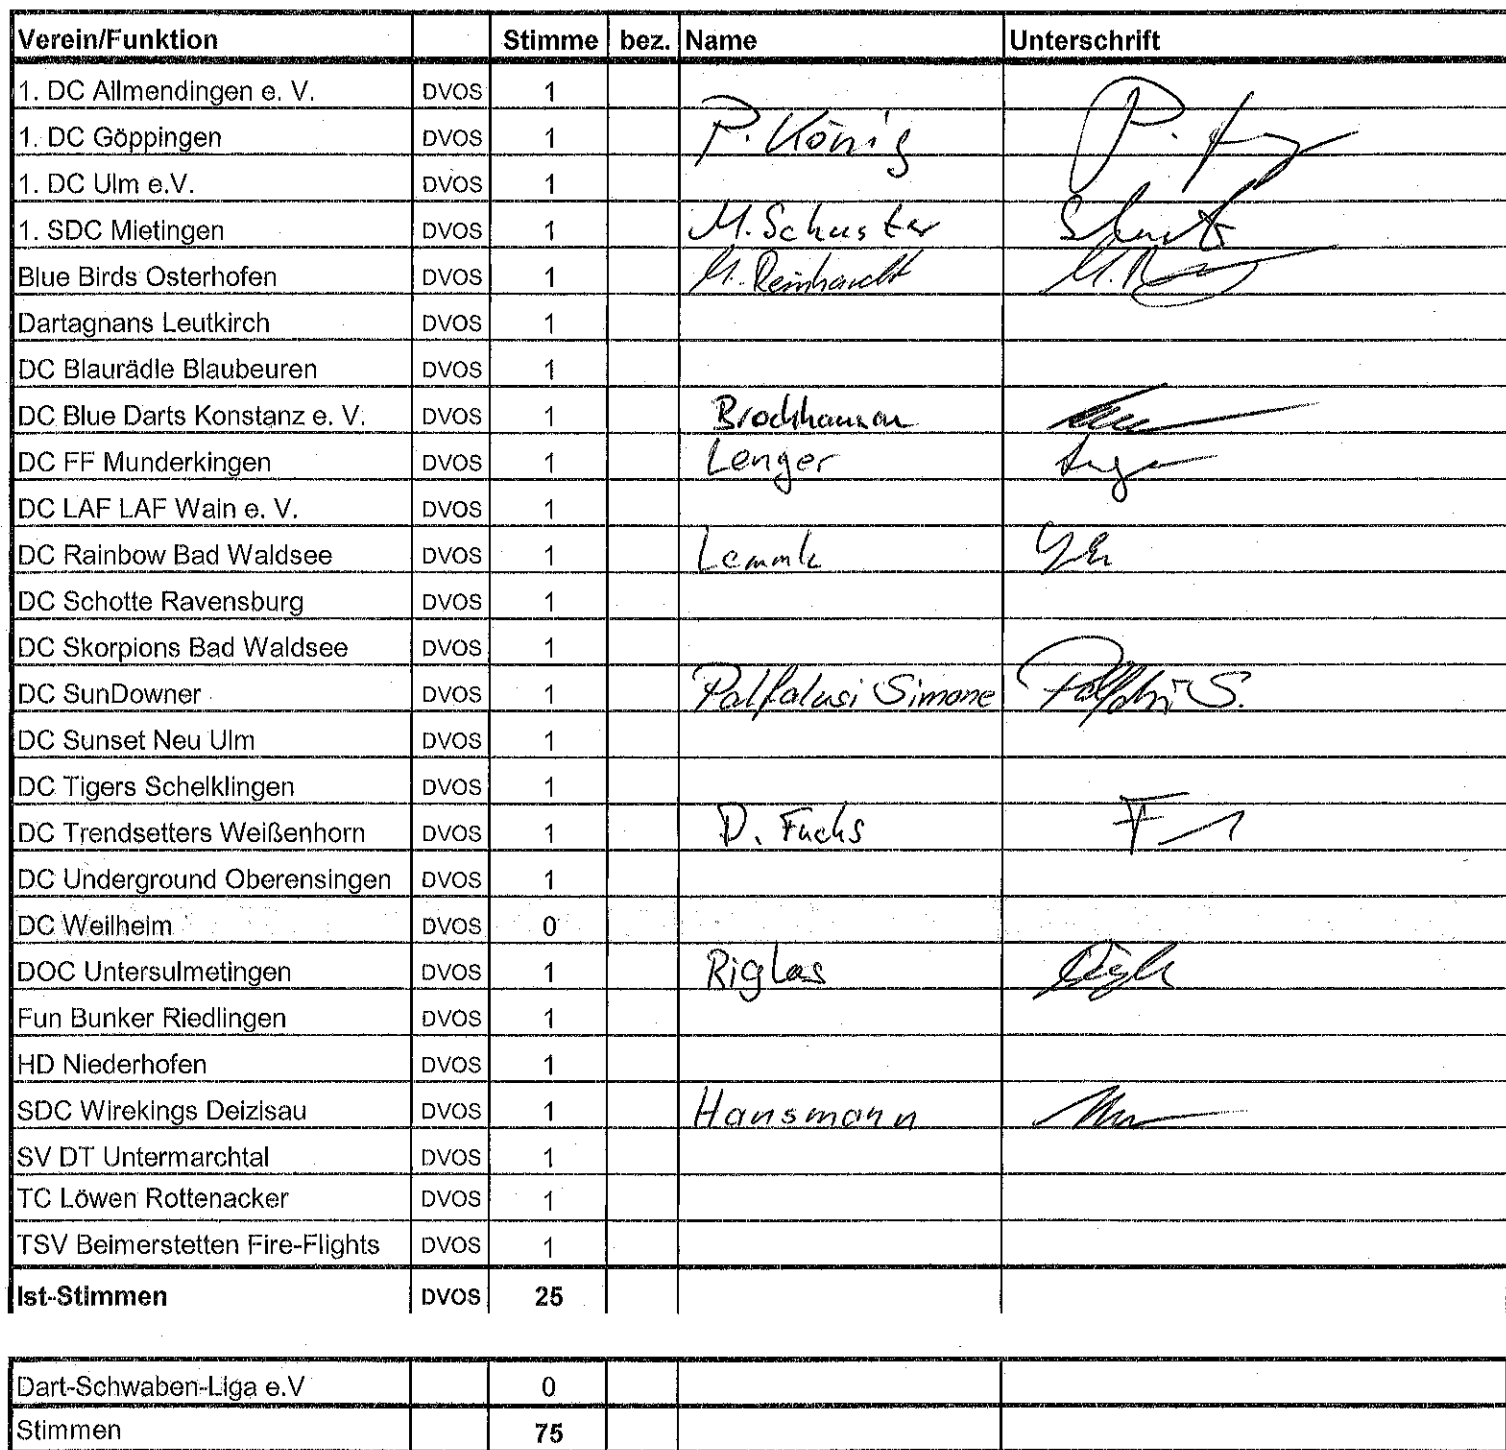 Verein/Funktion Stimme bez. Name Unterschrift
1. DC Allmendingen e. V. DVOS 1
1. DC Göppingen DVOS 1 P. König
1. DC Ulm e.V. DVOS 1
1. SDC Mietingen DVOS 1 M. Schuster
Blue Birds Osterhofen DVOS 1 M. Reinhardt
Dartagnans Leutkirch DVOS 1
DC Blaurädle Blaubeuren DVOS 1
DC Blue Darts Konstanz e. V. DVOS 1
DC FF Munderkingen DVOS 1 Lenger
DC LAF LAF Wain e. V. DVOS 1
DC Rainbow Bad Waldsee DVOS 1
DC Schotte Ravensburg DVOS 1
DC Skorpions Bad Waldsee DVOS 1
DC SunDowner DVOS 1 Simone
DC Sunset Neu Ulm DVOS 1
DC Tigers Schelklingen DVOS 1
DC Trendsetters Weißenhorn DVOS 1 D. Fuchs
DC Underground Oberensingen DVOS 1
DC Weilheim DVOS 0
DOC Untersulmetingen DVOS 1 Riglas
Fun Bunker Riedlingen DVOS 1
HD Niederhofen DVOS 1
SDC Wirekings Deizisau DVOS 1 Hansmann
SV DT Untermarchtal DVOS 1
TC Löwen Rottenacker DVOS 1
TSV Beimerstetten Fire-Flights DVOS 1
Ist-Stimmen DVOS 25
Dart-Schwaben-Liga e.V 0
Stimmen 75